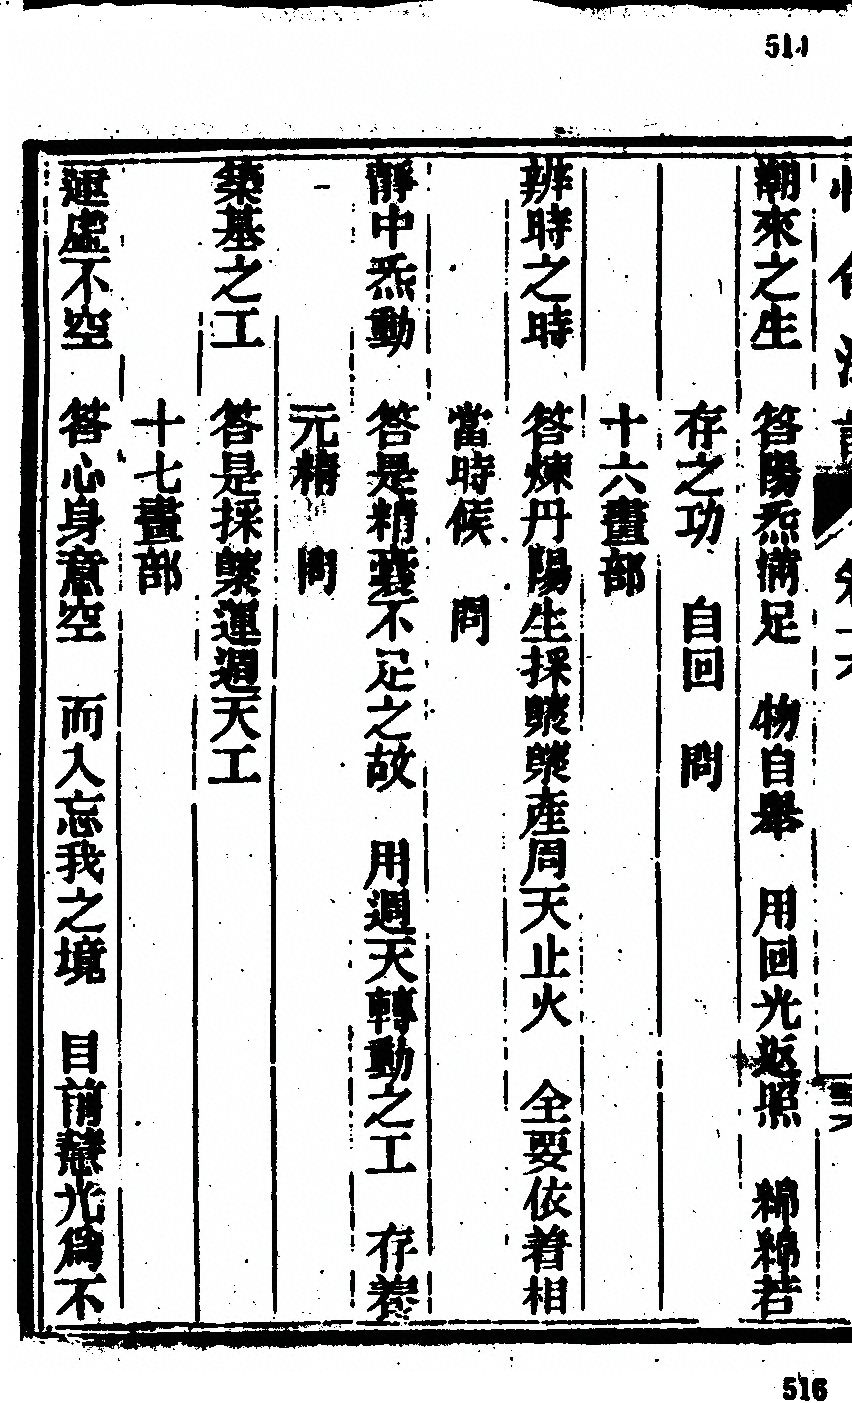 514
潮來之生 答陽炁滿足 物自舉 用回光返照 綿綿若
存之功 自回 問
十六畫部
辨時之時 答煉丹陽生採藥藥產周天止火 全要依着相
當時候 問
靜中炁動 答是精囊不足之故 用週天轉動之工 存養
元精 問
築基之工 答是採藥運週天工
十七畫部
還虛不空 答心身意空 而入忘我之境 目前慧光爲不
516